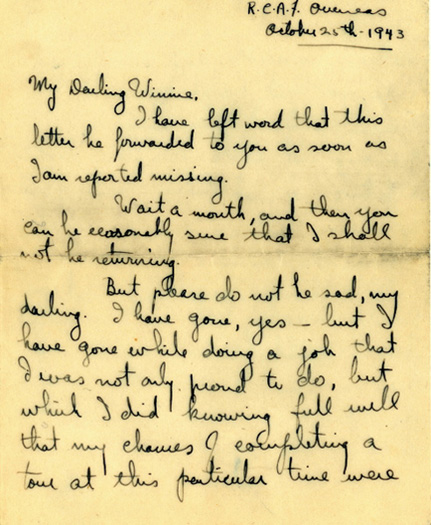 R.C.A.F. Overseas
October 25th - 1943
My Darling Winnie,
I have left word that this
letter be forwarded to you as soon as
I am reported missing.
Wait a month, and then you
can be reasonably sure that I shall
not be returning.
But please do not be sad, my
darling. I have gone, yes - but I
have gone while doing a job that
I was not only proud to do, but
which I did knowing full well
that my chances of completing a
tour at this particular time were